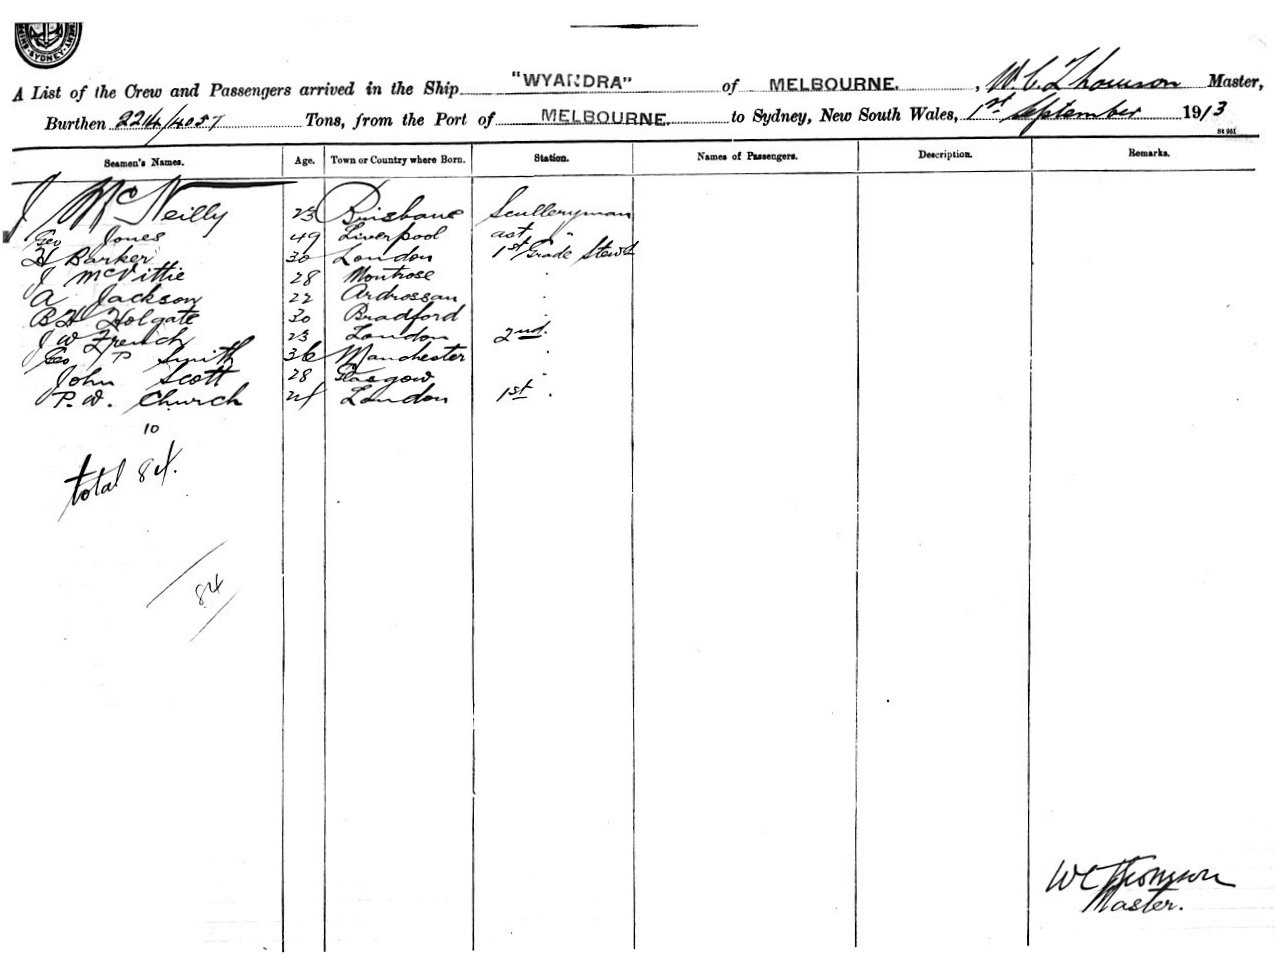 SYDNEY
A List of the Crew and Passengers arrived in the Ship "WYANDRA" of MELBOURNE. , W. C. Thomson Master,
Burthen 2214/4057 Tons, from the Port of MELBOURNE. to Sydney, New South Wales, 1st September 1913
Seamen's Names. Age. Town or Country where Born. Station. Names of Passengers. Description. Remarks.
J McNeilly 23 Brisbane Sculleryman
Geo Jones 49 Liverpool ast "
H Barker 30 London 1st Grade Stewd
J McVittie 28 Montrose "
A Jackson 22 Ardrossan "
B H Holgate 30 Bradford "
J W French 23 London 2nd "
Geo P Smith 36 Manchester "
John Scott 28 Glasgow "
P. W. Church 24 London 1st "
10
total 84.
84
W C Thomson
Master.